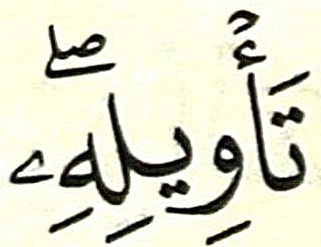 تَأۡوِيلِهِۦۖ